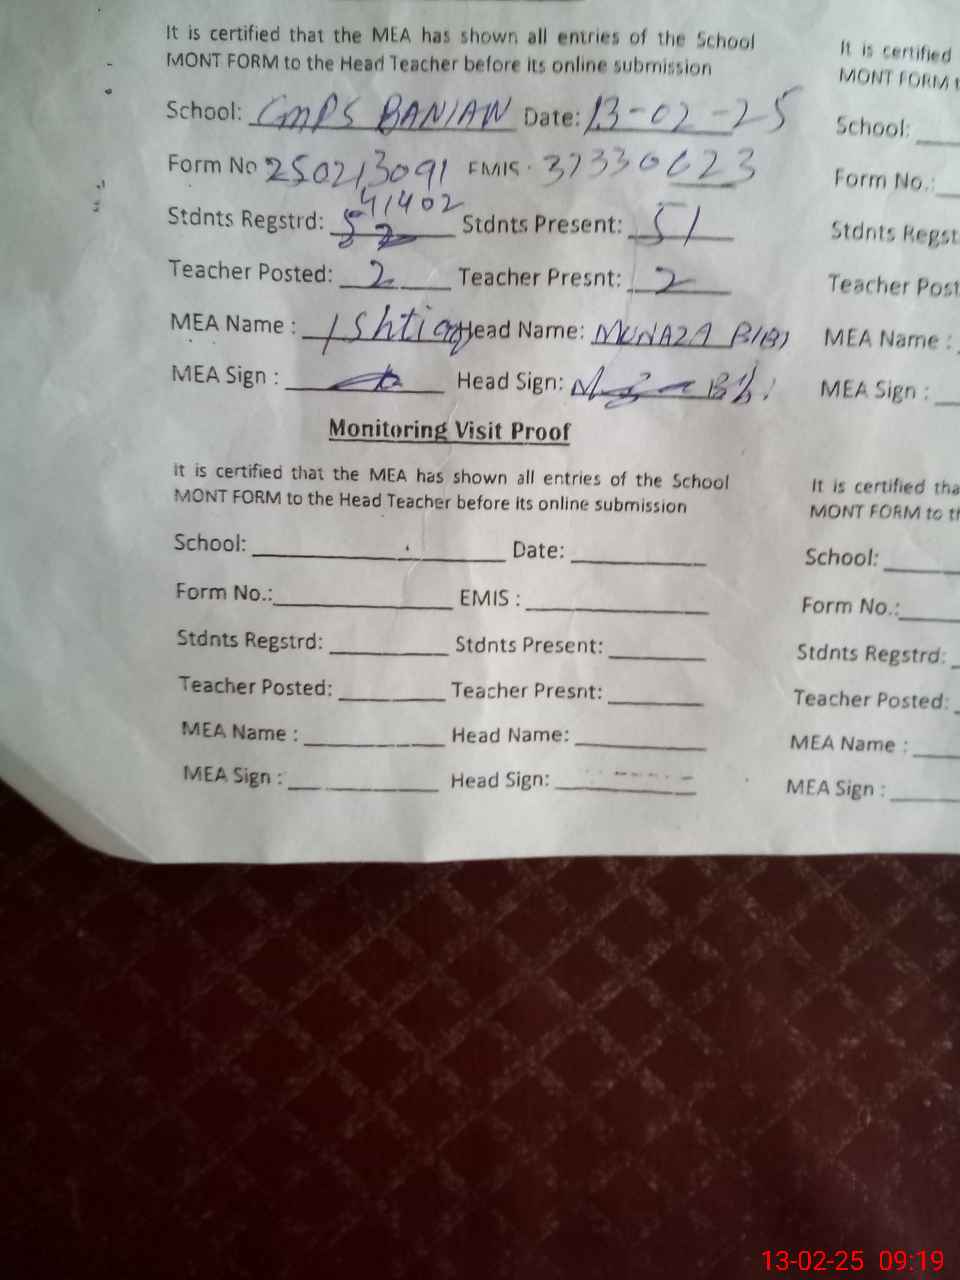 It is certified that the MEA has shown all entries of the School
MONT FORM to the Head Teacher before its online submission
School: GMPS BANIAN Date: 13-02-25
Form No 250213091 EMIS: 37330623
41402
Stdnts Regstrd: 52 Stdnts Present: 51
Teacher Posted: 2 Teacher Presnt: 2
MEA Name : Ishtiaq Head Name: MUNAZA BIBI
MEA Sign : Head Sign:
Monitoring Visit Proof
It is certified that the MEA has shown all entries of the School
MONT FORM to the Head Teacher before its online submission
School: Date:
Form No.: EMIS :
Stdnts Regstrd: Stdnts Present:
Teacher Posted: Teacher Presnt:
MEA Name : Head Name:
MEA Sign : Head Sign:
It is certified
MONT FORM
School:
Form No.:
Stdnts Regst
Teacher Post
MEA Name :
MEA Sign :
It is certified tha
MONT FORM to th
School:
Form No.:
Stdnts Regstrd:
Teacher Posted:
MEA Name :
MEA Sign :
13-02-25 09:19